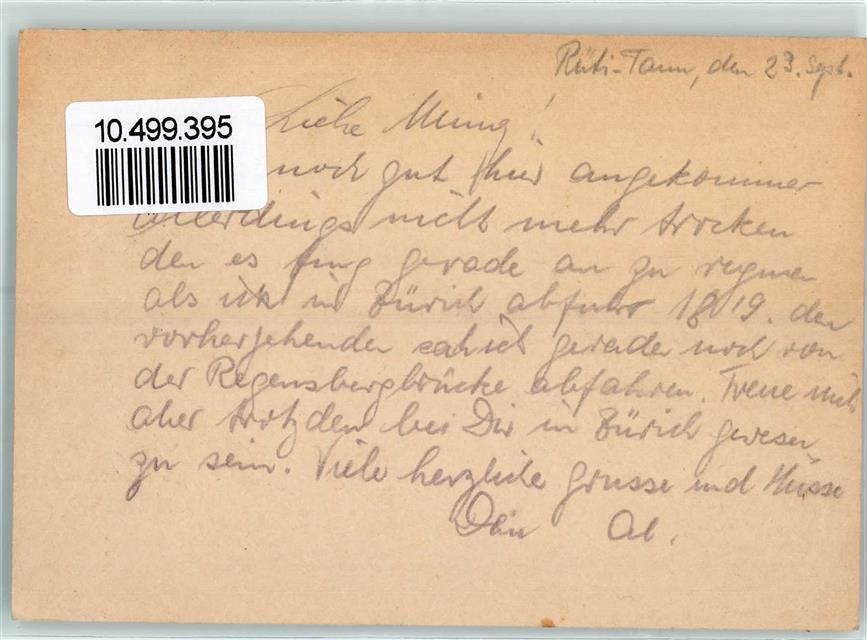 Rüti-Tann, den 23. Sept.
10.499.395
Liebe Meing!
noch gut hier angekommen
allerdings nicht mehr trocken
den es fing gerade an zu regnen
als ich in Zürich abfuhr 1819. den
vorhergehenden sah ich gerade noch von
der Regensbergbrücke abfahren. Freue mich
aber trotzdem bei Dir in Zürich gewesen
zu sein. Viele herzliche Grüsse und Küsse
Dein Al.